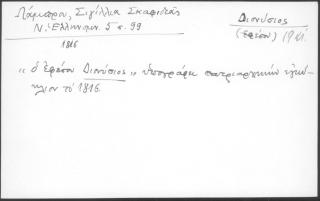 Λάμπρου, Σιγίλλια
Ν. Ἑλληνομν. 5 σ. 99
Διονύσιος
(Ἐφέσου)
1816
"ὁ Ἐφέσου Διονύσιος" ὑπογράφει πατριαρχικήν ἐγκύ-
κλιον τό 1816.